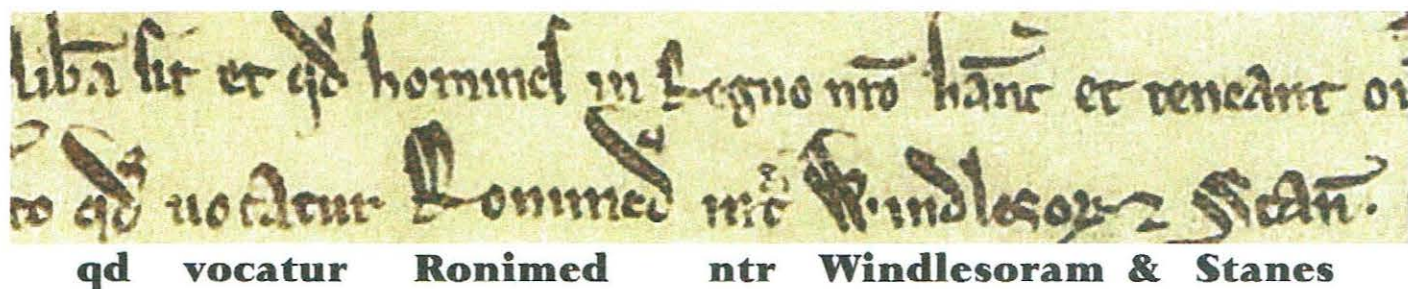 lib̄a sit et qd̄ homines in Regno nr̄o hānt et teneant om
to qd̄ vocatur Ronimed int̄ Windlesor̄ & Stan̄.
qd vocatur Ronimed ntr Windlesoram & Stanes